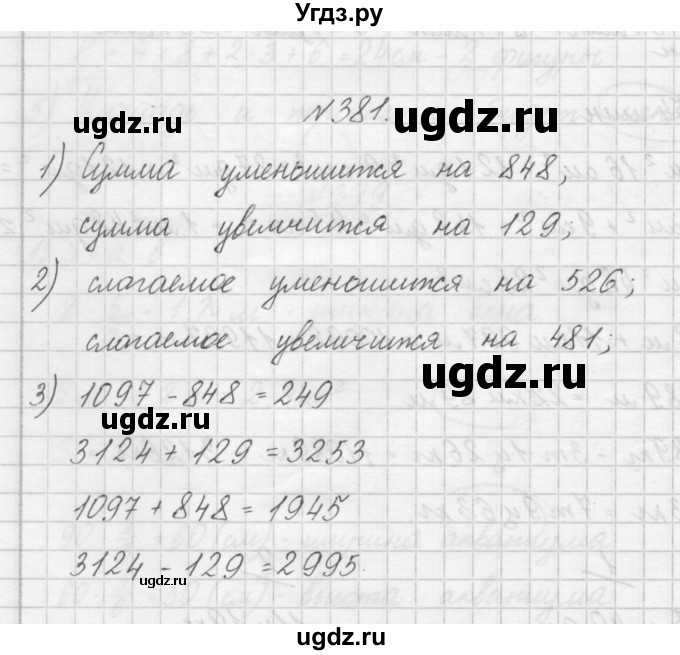 Угдз.ру
№381.
1) Сумма уменьшится на 848;
сумма увеличится на 129;
2) слагаемое уменьшится на 526;
слагаемое увеличится на 481;
3) 1097 - 848 = 249
3124 + 129 = 3253
1097 + 848 = 1945
3124 - 129 = 2995.
ugdz.ru
ugdz.ru
ugdz.ru
ugdz.ru
ugdz.ru
ugdz.ru